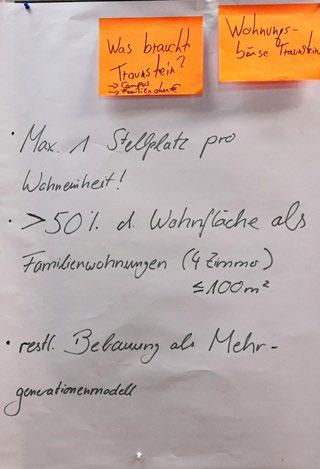 Was braucht
Traunstein?
→ Campus
→ Familien
Wohnungs-
börse Traunstein
· Max. 1 Stellplatz pro
Wohneinheit!
· >50% d. Wohnfläche als
Familienwohnungen (4 Zimmer)
≤100m²
· restl. Bebauung als Mehr-
generationenmodell